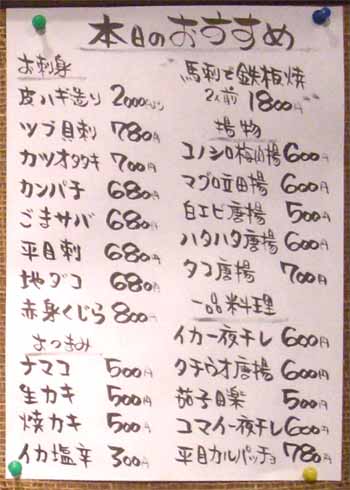 本日のおすすめ
お刺身
皮ハギ造り 2000円より
ツブ貝刺 780円
カツオタタキ 700円
カンパチ 680円
ごまサバ 680円
平目刺 680円
地ダコ 680円
赤身くじら 800円
おつまみ
ナマコ 500円
生カキ 500円
焼カキ 500円
イカ塩辛 300円
馬刺し鉄板焼
2人前 1800円
揚物
コノシロ梅肉揚 600円
マグロ立田揚 600円
白エビ唐揚 500円
ハタハタ唐揚 600円
タコ唐揚 700円
一品料理
イカ一夜干し 600円
タチウオ唐揚 600円
茄子田楽 500円
コマイ一夜干し 600円
平目カルパッチョ 780円